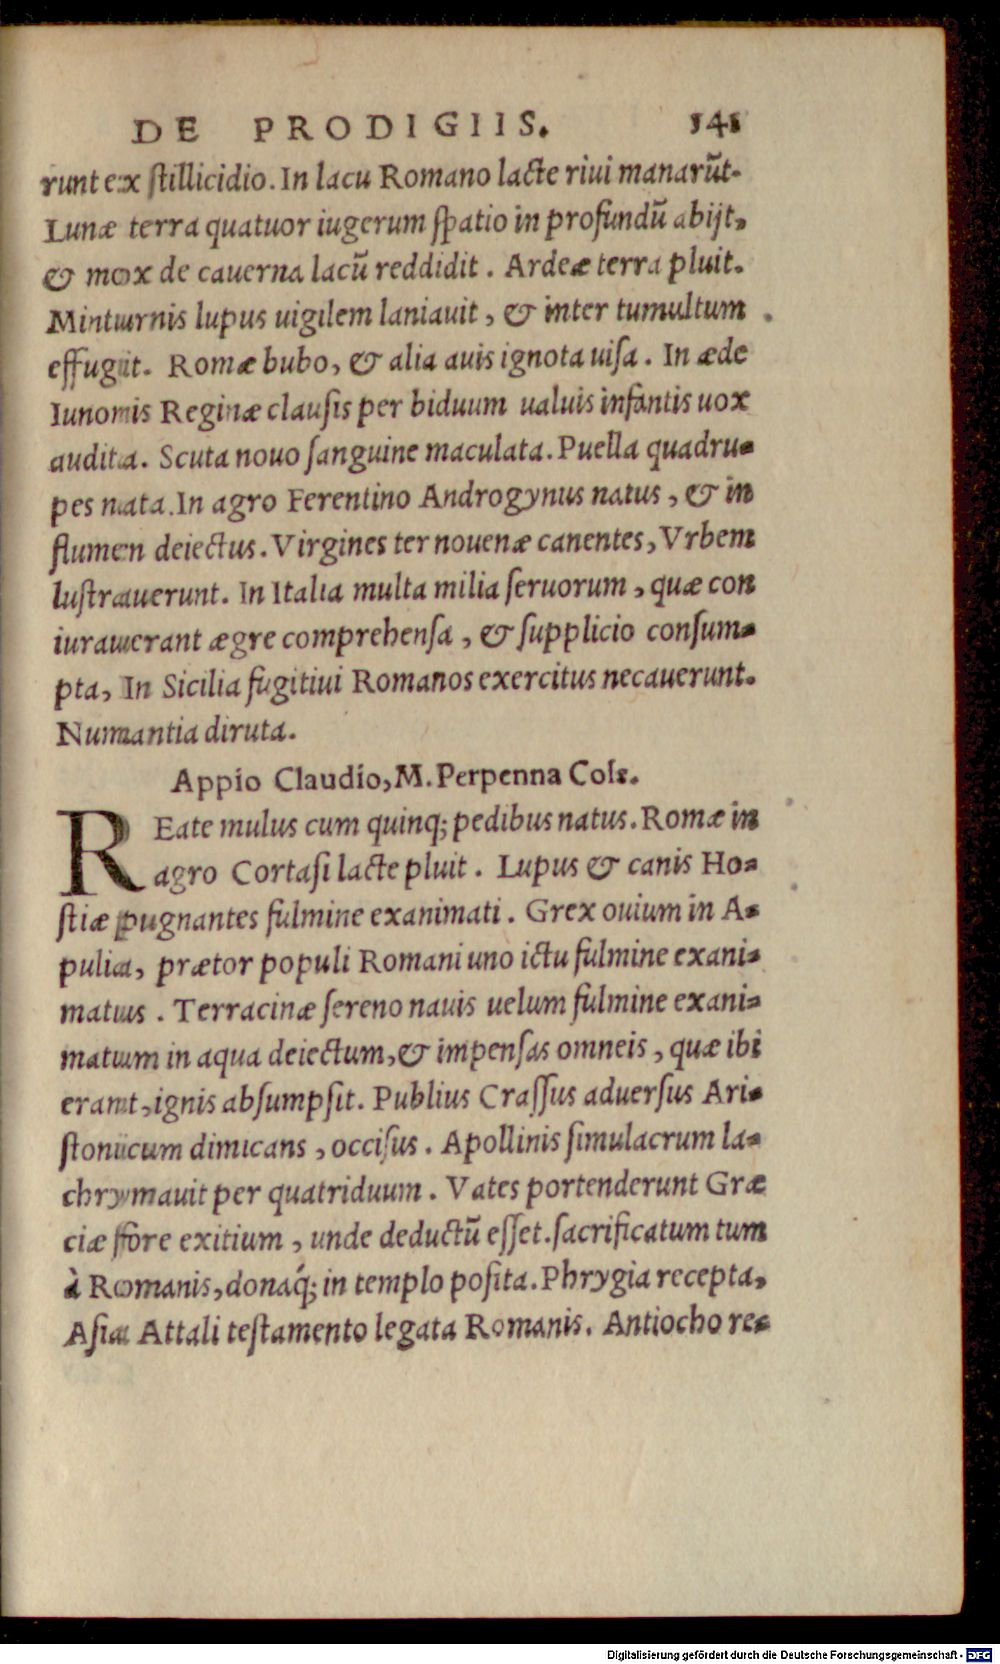 DE PRODIGIIS. 141
runt ex ſtillicidio. In lacu Romano lacte riui manarūt.
Lunæ terra quatuor iugerum ſpatio in profundū abijt,
& mox de cauerna lacū reddidit. Ardeæ terra pluit.
Minturnis lupus uigilem laniauit, & inter tumultum
effugit. Romæ bubo, & alia auis ignota uiſa. In æde
Iunonis Reginæ clauſis per biduum ualuis infantis uox
audita. Scuta nouo ſanguine maculata. Puella quadru-
pes nata. In agro Ferentino Androgynus natus, & in
flumen deiectus. Virgines ter nouenæ canentes, Vrbem
luſtrauerunt. In Italia multa milia ſeruorum, quæ con
iurauerant ægre comprehenſa, & ſupplicio conſum-
pta, In Sicilia fugitiui Romanos exercitus necauerunt.
Numantia diruta.
Appio Claudio, M. Perpenna Coſs.
REate mulus cum quinq; pedibus natus. Romæ in
agro Cortaſi lacte pluit. Lupus & canis Ho-
ſtiæ pugnantes fulmine exanimati. Grex ouium in A-
pulia, prætor populi Romani uno ictu fulmine exani-
matus. Terracinæ ſereno nauis uelum fulmine exani-
matum in aqua deiectum, & impenſas omneis, quæ ibi
erant, ignis abſumpſit. Publius Craſſus aduerſus Ari-
ſtonicum dimicans, occiſus. Apollinis ſimulacrum la-
chrymauit per quatriduum. Vates portenderunt Græ
ciæ fore exitium, unde deductū eſſet. ſacrificatum tum
à Romanis, donaq́; in templo poſita. Phrygia recepta,
Aſia Attali teſtamento legata Romanis. Antiocho re-
Digitalisierung gefördert durch die Deutsche Forschungsgemeinschaft - DFG